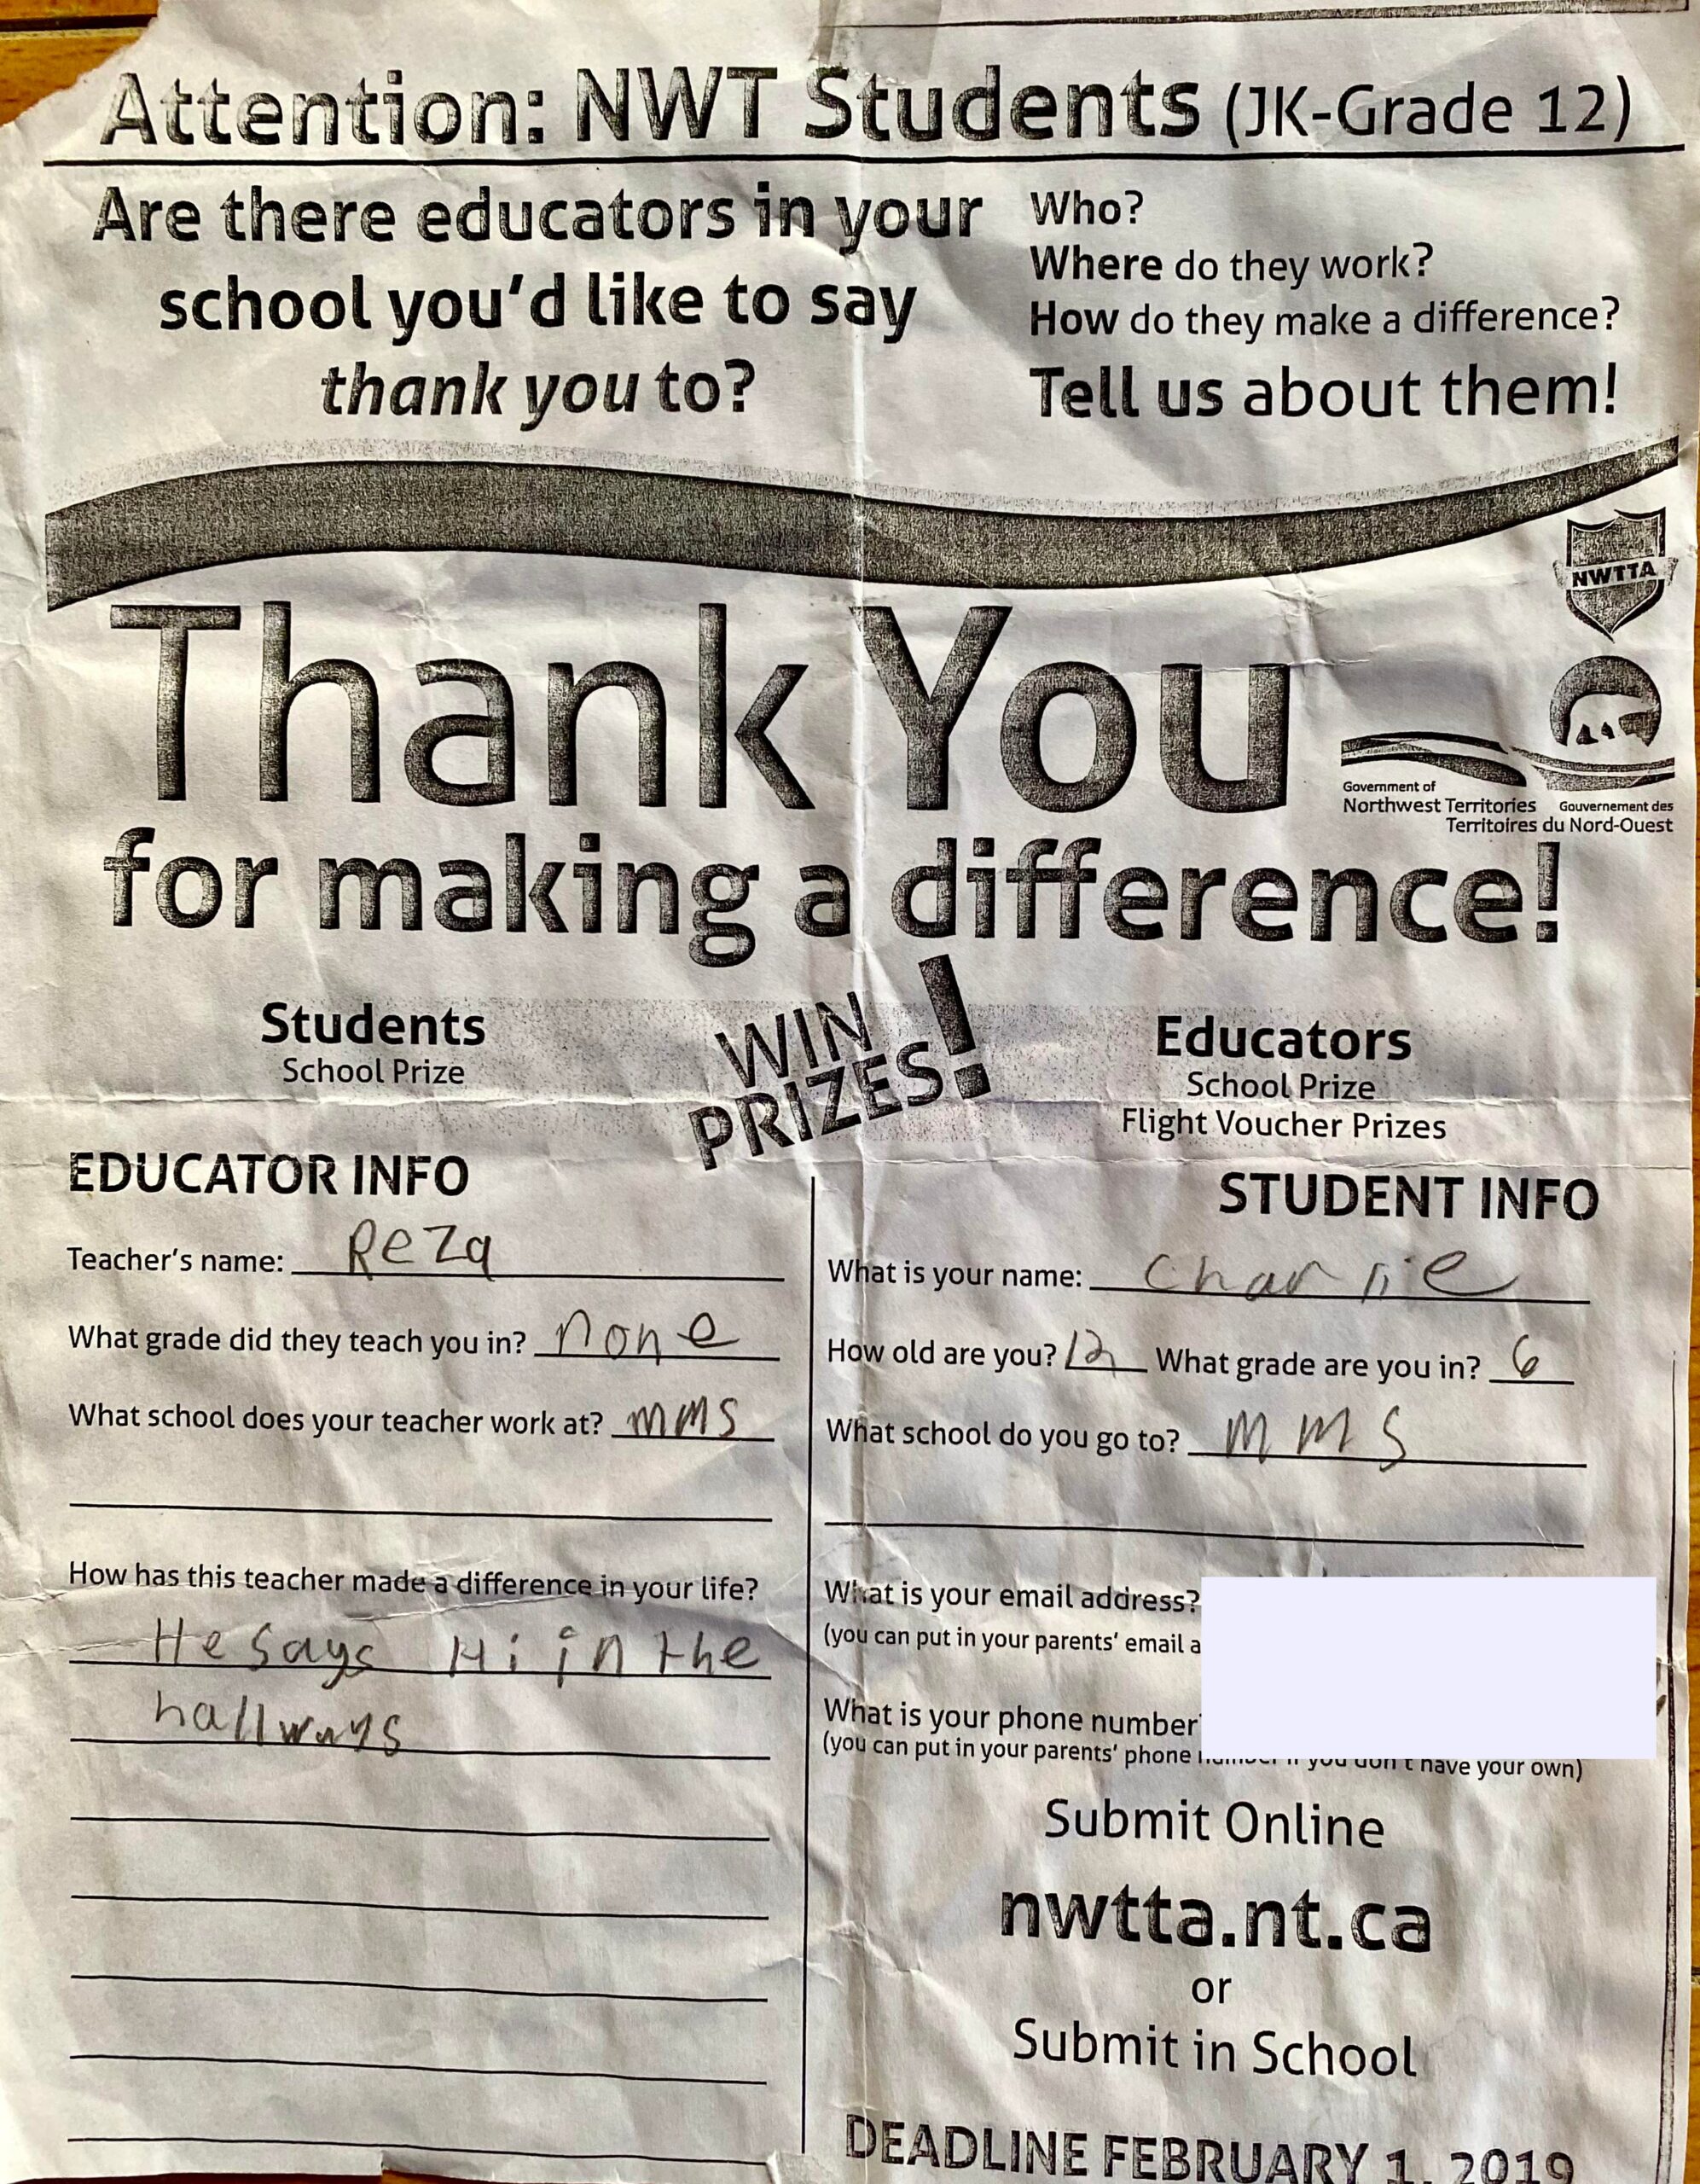 Attention: NWT Students (JK-Grade 12)
Are there educators in your
school you'd like to say
thank you to?
Who?
Where do they work?
How do they make a difference?
Tell us about them!
NWTTA
Thank You
Government of
Northwest Territories
Gouvernement des
Territoires du Nord-Ouest
for making a difference!
Students
School Prize
WIN
PRIZES!
Educators
School Prize
Flight Voucher Prizes
EDUCATOR INFO
Teacher's name: Reza
What grade did they teach you in? none
What school does your teacher work at? mms
How has this teacher made a difference in your life?
He says Hi in the
hallways
STUDENT INFO
What is your name: Charlie
How old are you? 12 What grade are you in? 6
What school do you go to? M M S
What is your email address?
(you can put in your parents' email a
What is your phone number
(you can put in your parents' phone number if you don't have your own)
Submit Online
nwtta.nt.ca
or
Submit in School
DEADLINE FEBRUARY 1, 2019